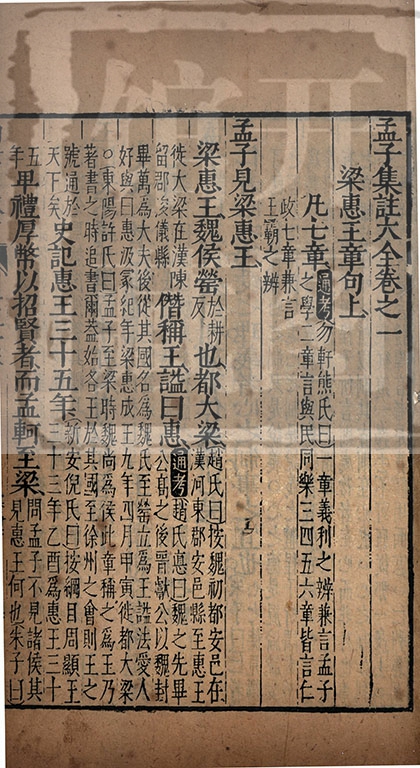 孟子集註大全卷之一
梁惠王章句上
凡七章 通考 勿軒熊氏曰一章義利之辨兼言孟子
之學二章言與民同樂三四五六章皆言仁
政七章兼言
王霸之辨
孟子見梁惠王
梁惠王魏侯罃 於耕
反 也都大梁 趙氏曰按魏初都安邑在
漢河東郡安邑縣至惠王
徙大梁在漢陳
留郡浚儀縣 僭稱王謚曰惠 通考 趙氏悳曰魏之先畢
公高之後晋獻公以魏封
畢萬為大夫後從其國名為魏氏至罃立為王謚法愛人
好與曰惠汲冢紀年梁惠成王九年四月甲寅徙都大梁
○東陽許氏曰孟子至梁時魏尚為侯此章稱之為王乃
著書之時追書爾蓋始各王於其國至徐州之會則王之
號通於
天下矣 史記惠王三十五年 新安倪氏曰按綱目周顯王
三十三年乙酉為惠王三十
五
年 卑禮厚幣以招賢者而孟軻至梁 問孟子不見諸侯其
見惠王何也朱子曰